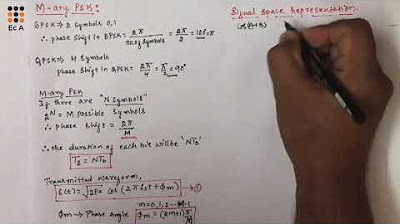 Ec A
M-ary PSK:
BPSK ⇒ 2 symbols 0,1
∴ phase shift in BPSK = 2π / no of symbols = 2π/2 = 180° = π
QPSK ⇒ 4 symbols
phase shift in QPSK = 2π/4 = π/2 = 90°
M-ary PSK
If there are "N symbols"
2^N = M possible symbols
∴ phase shift = 2π/M
∴ the duration of each bit will be 'NTb'
Ts = NTb
Transmitted waveform,
S(t) = √2Ps cos (2πfot + ϕm) → ①
m = 0,1,2 ... M-1
ϕm → Phase angle ϕm = (2m+1) π/M
Signal space Representation:
cos(A+B)